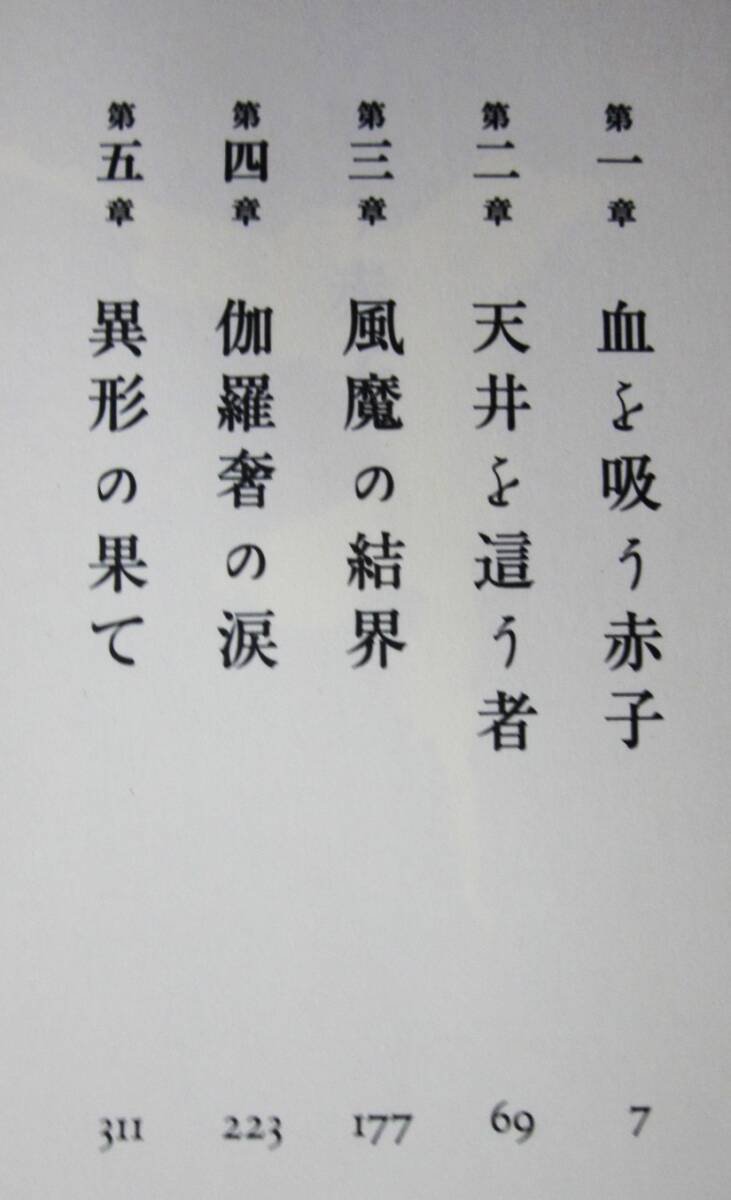 第一章 血を吸う赤子 7
第二章 天井を這う者 69
第三章 風魔の結界 177
第四章 伽羅奢の涙 223
第五章 異形の果て 311